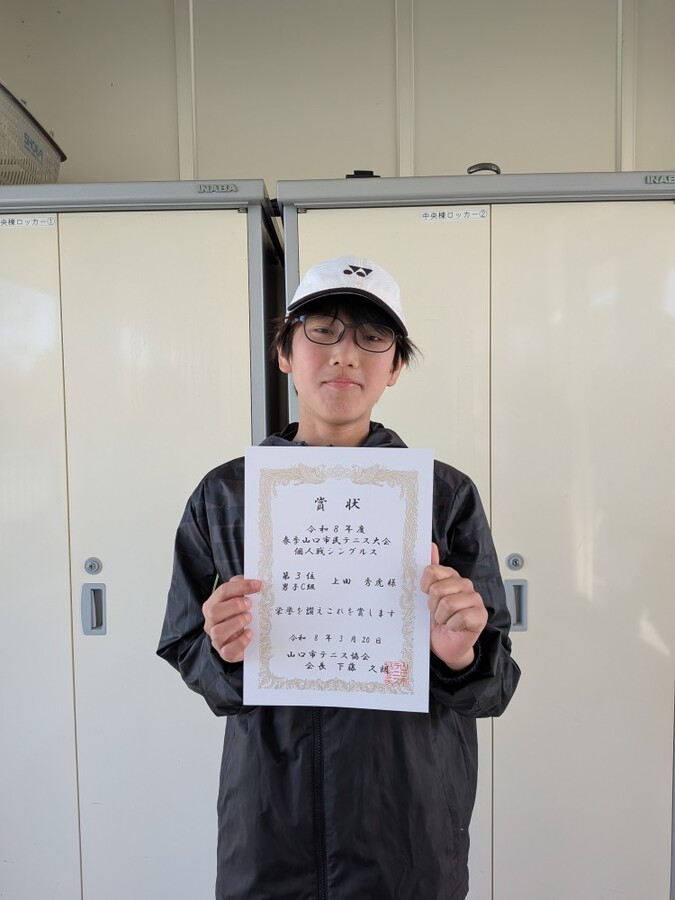 INABA
INABA
央棟ロッカー①
中央棟ロッカー②
賞状
令和8年度
春季山口市民テニス大会
個人戦シングルス
第3位
男子C組
上田 秀虎様
栄誉を讃えこれを賞します
令和8年3月20日
山口市テニス協会
会長 下藤 久朗